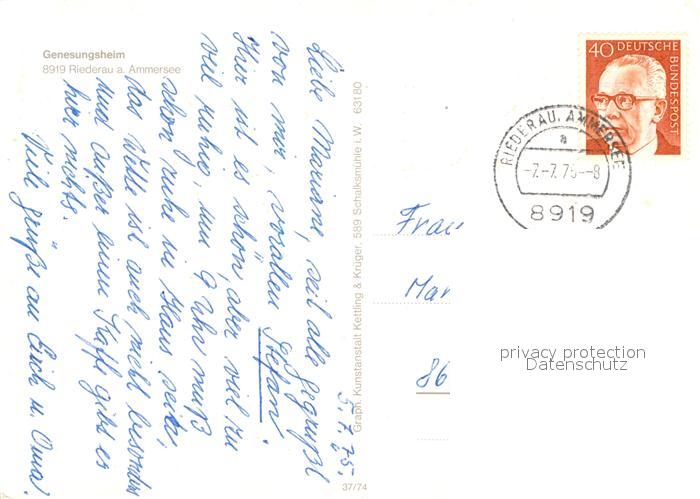 Genesungsheim
8919 Riederau a. Ammersee
5.7.75.
Liebe Mariane, seid alle gegrüßt
von mir, vorallem Stefan.
Hier ist es schön, aber viel zu
viel ruhig, um 9 Uhr muß
schon ruhe im Haus sein,
das Wetter ist auch nicht besonders
und außer einem Kaffe gibt es
hier nichts.
Viele grüße an Euch u. Oma.
Graph. Kunstanstalt Kettling & Krüger, 589 Schalksmühle i. W. 63180
37/74
40 DEUTSCHE
BUNDESPOST
RIEDERAU, AMMERSEE
a
-7.-7.75--8
8919
Frau
Mar
86
privacy protection
Datenschutz